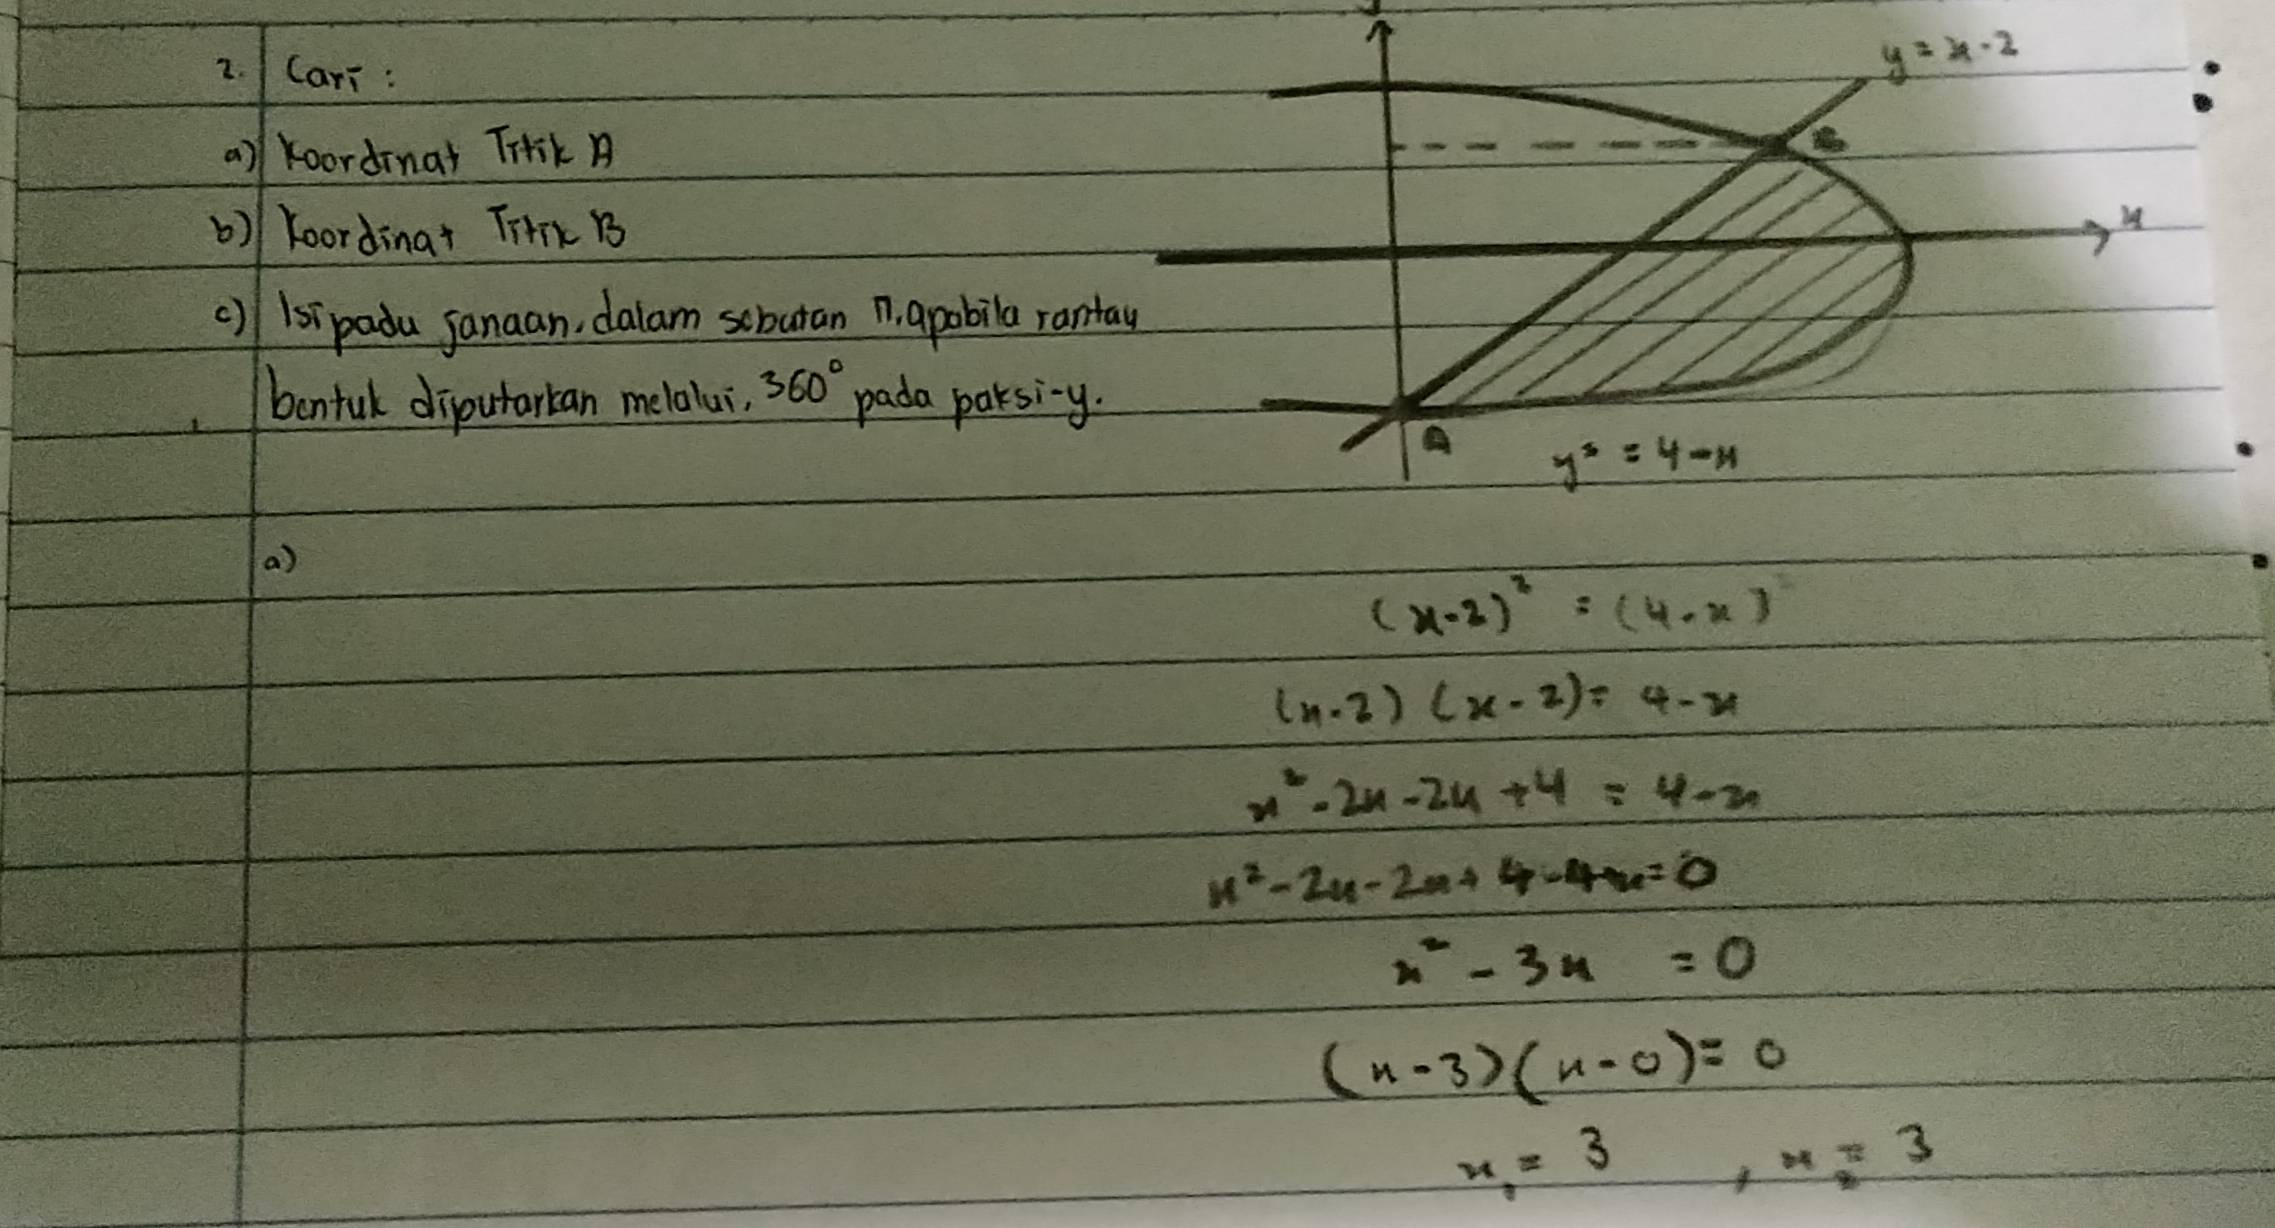 2. Cari :
a) Koordinat Titik A
b) Koordinat Titik B
c) Isipadu janaan, dalam sebutan π, apabila rantau
bentuk diputarkan melalui, 360° pada paksi-y.
y = x - 2
B
x
A
y² = 4 - x
a)
(x - 2)² = (4 - x)
(x - 2) (x - 2) = 4 - x
x² - 2x - 2x + 4 = 4 - x
x² - 2x - 2x + 4 - 4 + x = 0
x² - 3x = 0
(x - 3)(x - 0) = 0
x₁ = 3 , x₂ = 3